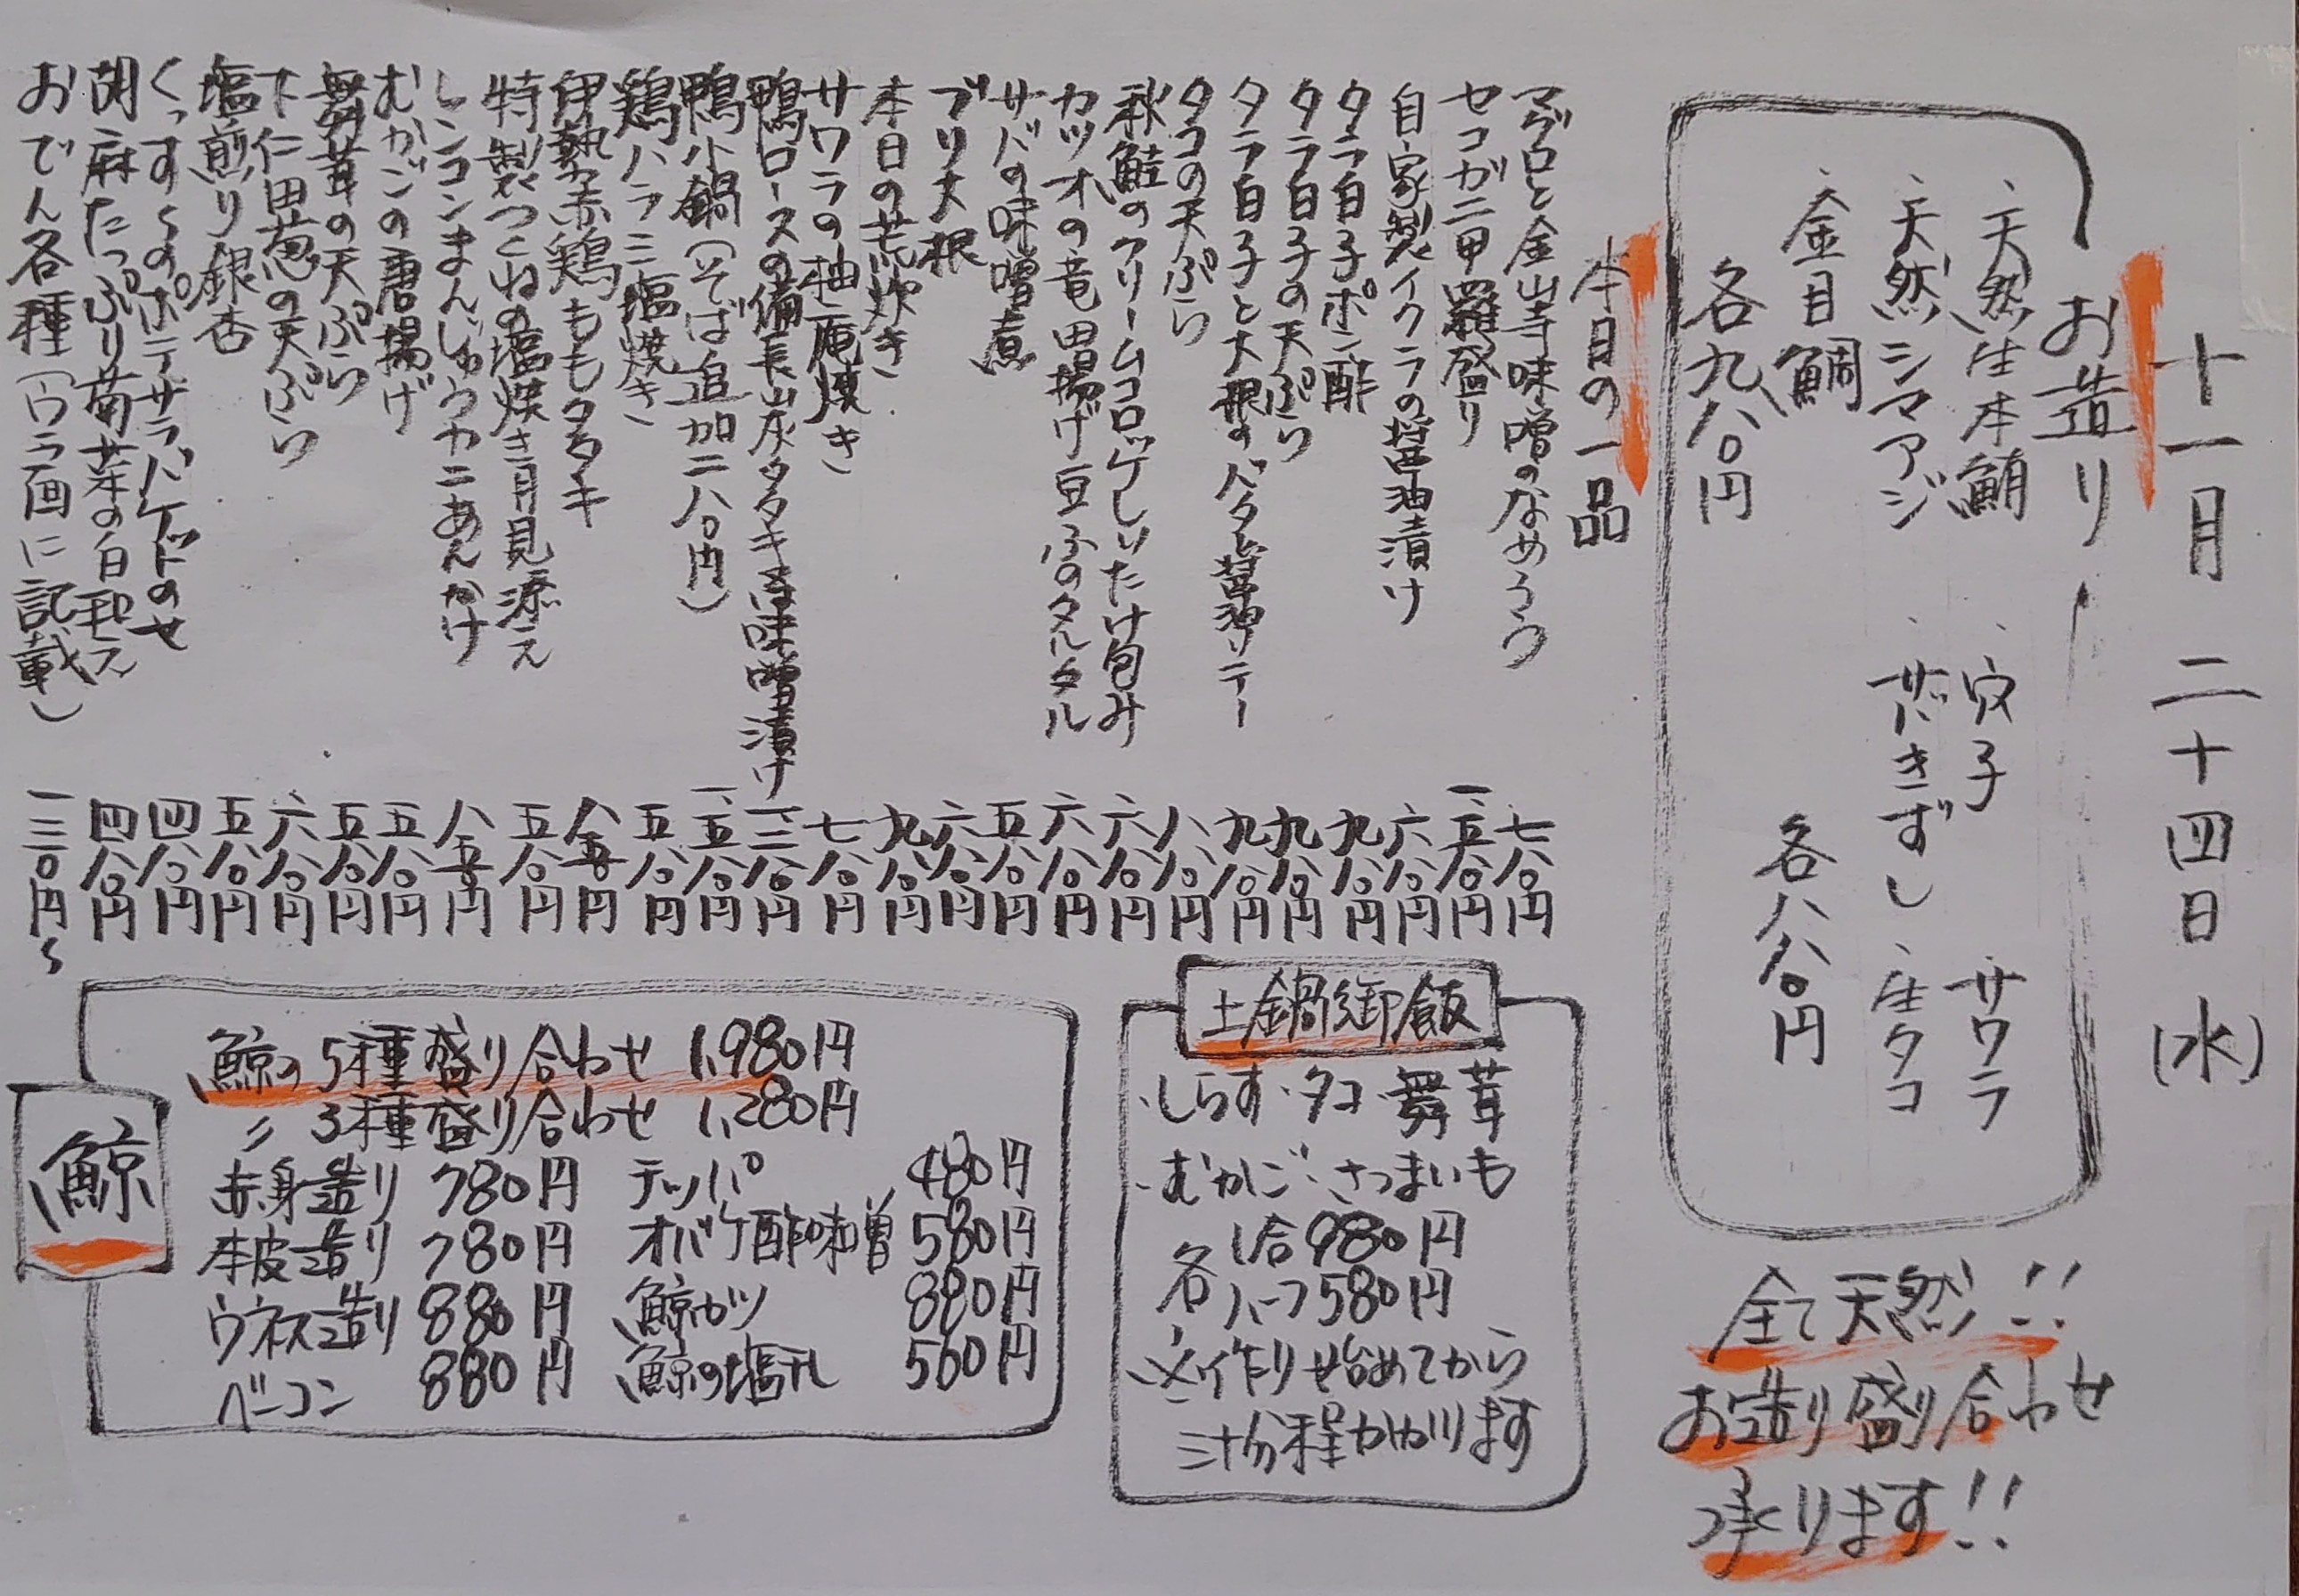 十一月二十四日(水)
お造り
・天然生本鮪
・天然シマアジ
・金目鯛
各九八〇円
・穴子
・サワラ
・さばきずし
・生タコ
各八八〇円
全て天然!!
お造り盛り合わせ
承ります!!
本日の一品
マグロと金山寺味噌のなめろう 七八〇円
セコガニ甲羅盛り 一、五八〇円
自家製イクラの醤油漬け 六八〇円
タラ白子ポン酢 九八〇円
タラ白子の天ぷら 九八〇円
タラ白子と大根のバター醤油ソテー 九八〇円
タコの天ぷら 八八〇円
秋鮭のクリームコロッケしいたけ包み 六八〇円
カツオの竜田揚げ豆ふのタルタル 六八〇円
サバの味噌煮 五八〇円
ブリ大根 六八〇円
本日の荒炊き 九八〇円
サワラの柚庵焼き 七八〇円
鴨ロースの備長炭タタキ 味噌漬け 一、二八〇円
鴨小鍋(そば追加二八〇円) 一、五八〇円
鶏ハラミ塩焼き 五八〇円
伊勢赤鶏ももタタキ 八五〇円
特製つくねの塩焼き月見添え 五八〇円
レンコンまんじゅうカニあんかけ 八五〇円
むかごの唐揚げ 五八〇円
舞茸の天ぷら 五八〇円
下仁田葱の天ぷら 六八〇円
塩煎り銀杏 五八〇円
くっすーのポテサラバケットのせ 四八〇円
胡麻たっぷり菊菜の白和え 四八〇円
おでん各種(ウラ面に記載) 一三〇円〜
土鍋御飯
・しらす・タコ・舞茸
・むかご・さつまいも
各1合980円
各ハーフ580円
※作り始めてから
三十分程かかります
鯨
鯨の5種盛り合わせ 1,980円
〃 3種盛り合わせ 1,280円
赤身造り 780円 テッパ 480円
本皮造り 780円 オバケ酢味噌 580円
ウネス造り 880円 鯨カツ 880円
ベーコン 880円 鯨の塩乳 560円